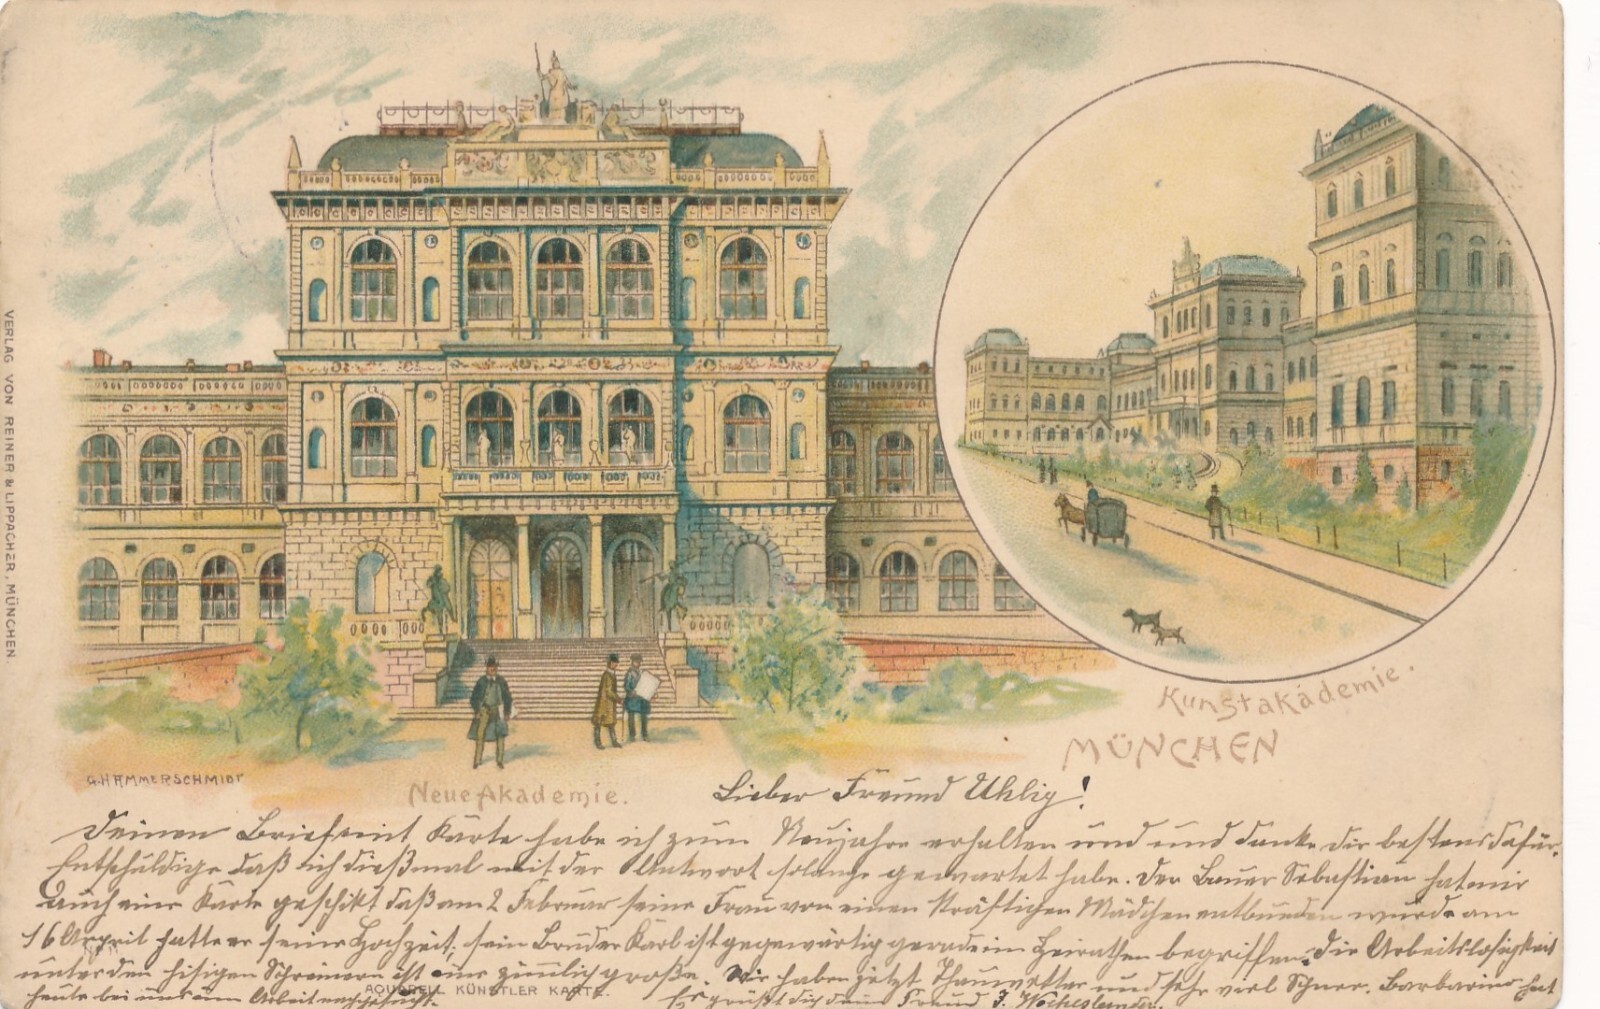 VERLAG VON REINER & LIPPACHER, MÜNCHEN.
G. HAMMERSCHMIDT
Neue Akademie.
Kunstakademie.
MÜNCHEN
Lieber Freund Uhlig!
Deinen Brief mit Karte habe ich zum Neujahre erhalten und und danke dir bestens dafür.
Entschuldige daß ich dießmal mit der Antwort solange gewartet habe. Der Bauer Sebastian hat mir
Auch eine Karte geschikt daß am 2 Februar seine Frau von einen kräftigen Mädchen entbunden wurde am
16 April hatte er seine Hochzeit; sein Bruder Karl ist gegenwärtig gerade im Heirathen begriffen. Die Arbeitslosigkeit
unter den hisigen Schreinern ist eine zimlich große. Wir haben jetzt Thauwetter und sehr viel Schnee. Barbarino hat
heute bei uns um Arbeit nachgesucht. Es grüßt dich dein Freund J.
AQUARELL KÜNSTLER KARTE.